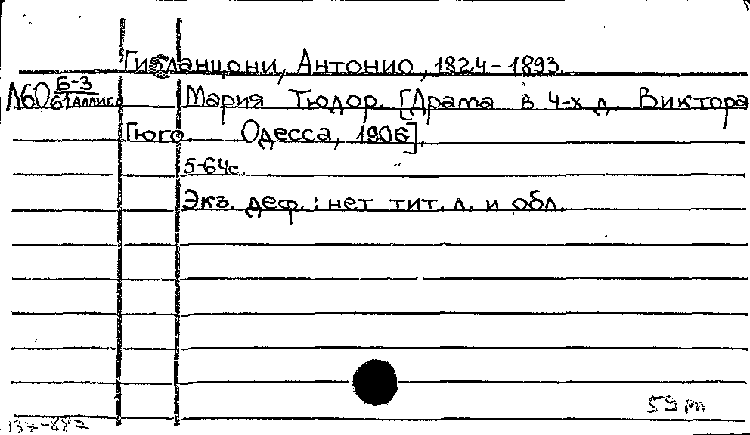 Гибланцони, Антонио, 1824-1893.
Л60 Б-3
61
Мария Тюдор. [Драма в 4-х д. Виктора
Гюго. Одесса, 1906].
5-64с.
Экз. деф.: нет тит. л. и обл.
59 m
137-887